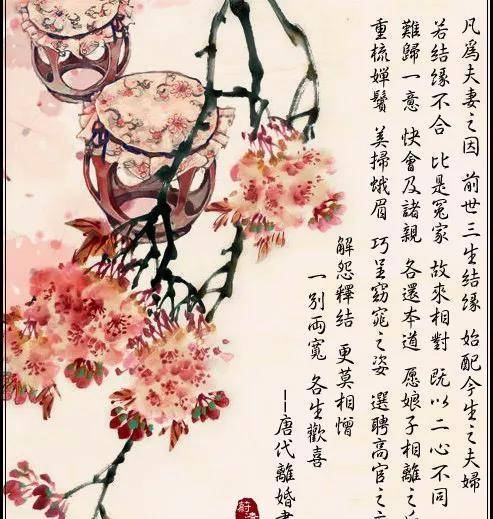 凡爲夫妻之因 前世三生結緣 始配今生之夫婦
若結緣不合 比是冤家 故來相對 既以二心不同
難歸一意 快會及諸親 各還本道 願娘子相離之
重梳嬋鬢 美掃蛾眉 巧呈窈窕之姿 選聘高官之
解怨釋結 更莫相憎
一別兩寬 各生歡喜
——唐代離婚書